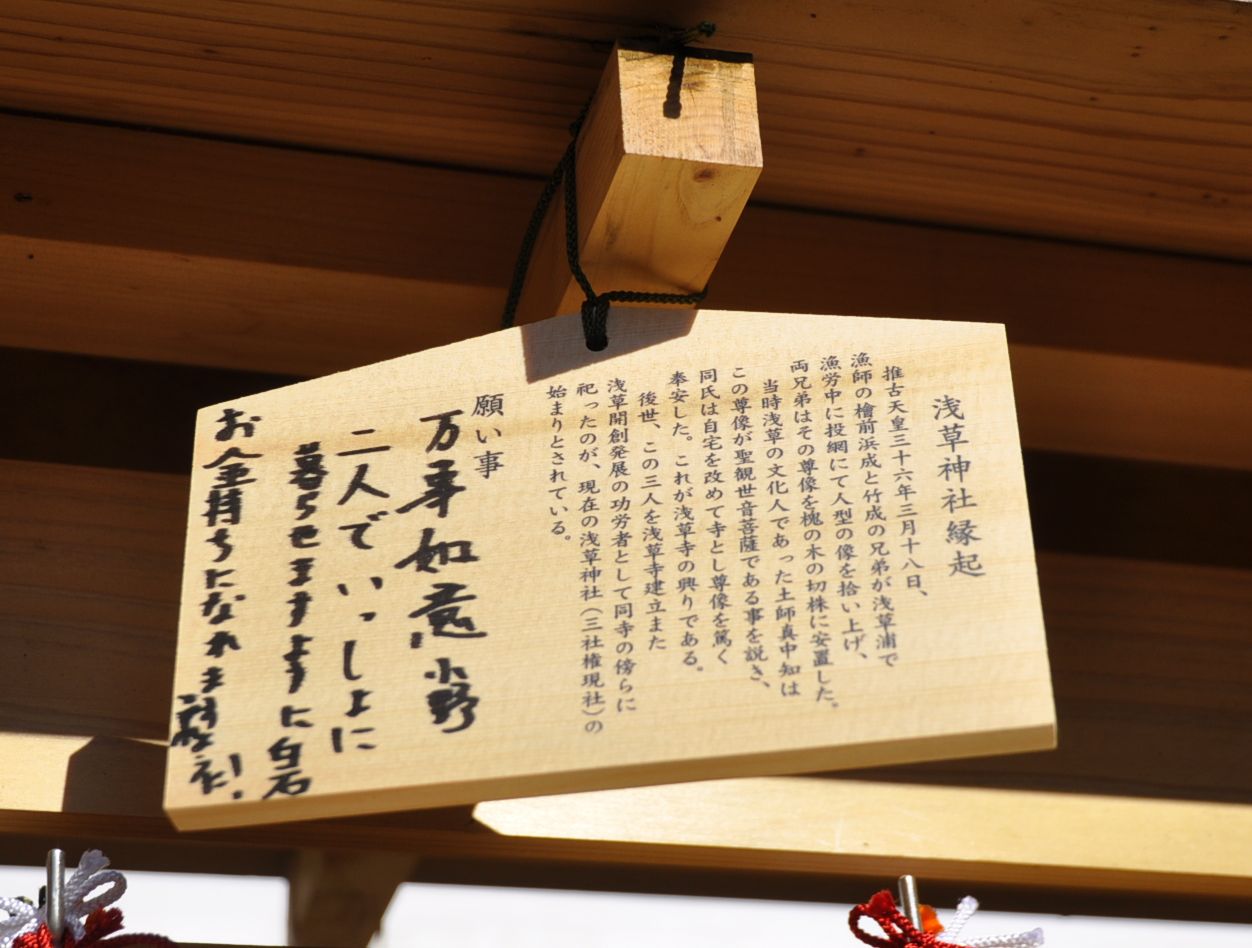 浅草神社縁起
推古天皇三十六年三月十八日、
漁師の檜前浜成と竹成の兄弟が浅草浦で
漁労中に投網にて人型の像を拾い上げ、
両兄弟はその尊像を槐の木の切株に安置した。
当時浅草の文化人であった土師真中知は
この尊像が聖観世音菩薩である事を説き、
同氏は自宅を改めて寺とし尊像を篤く
奉安した。これが浅草寺の興りである。
後世、この三人を浅草寺建立また
浅草開創発展の功労者として同寺の傍らに
祀ったのが、現在の浅草神社(三社権現社)の
始まりとされている。
願い事
万事如意 小野
二人でいっしょに
暮らせますように 白石
お金持ちになれま